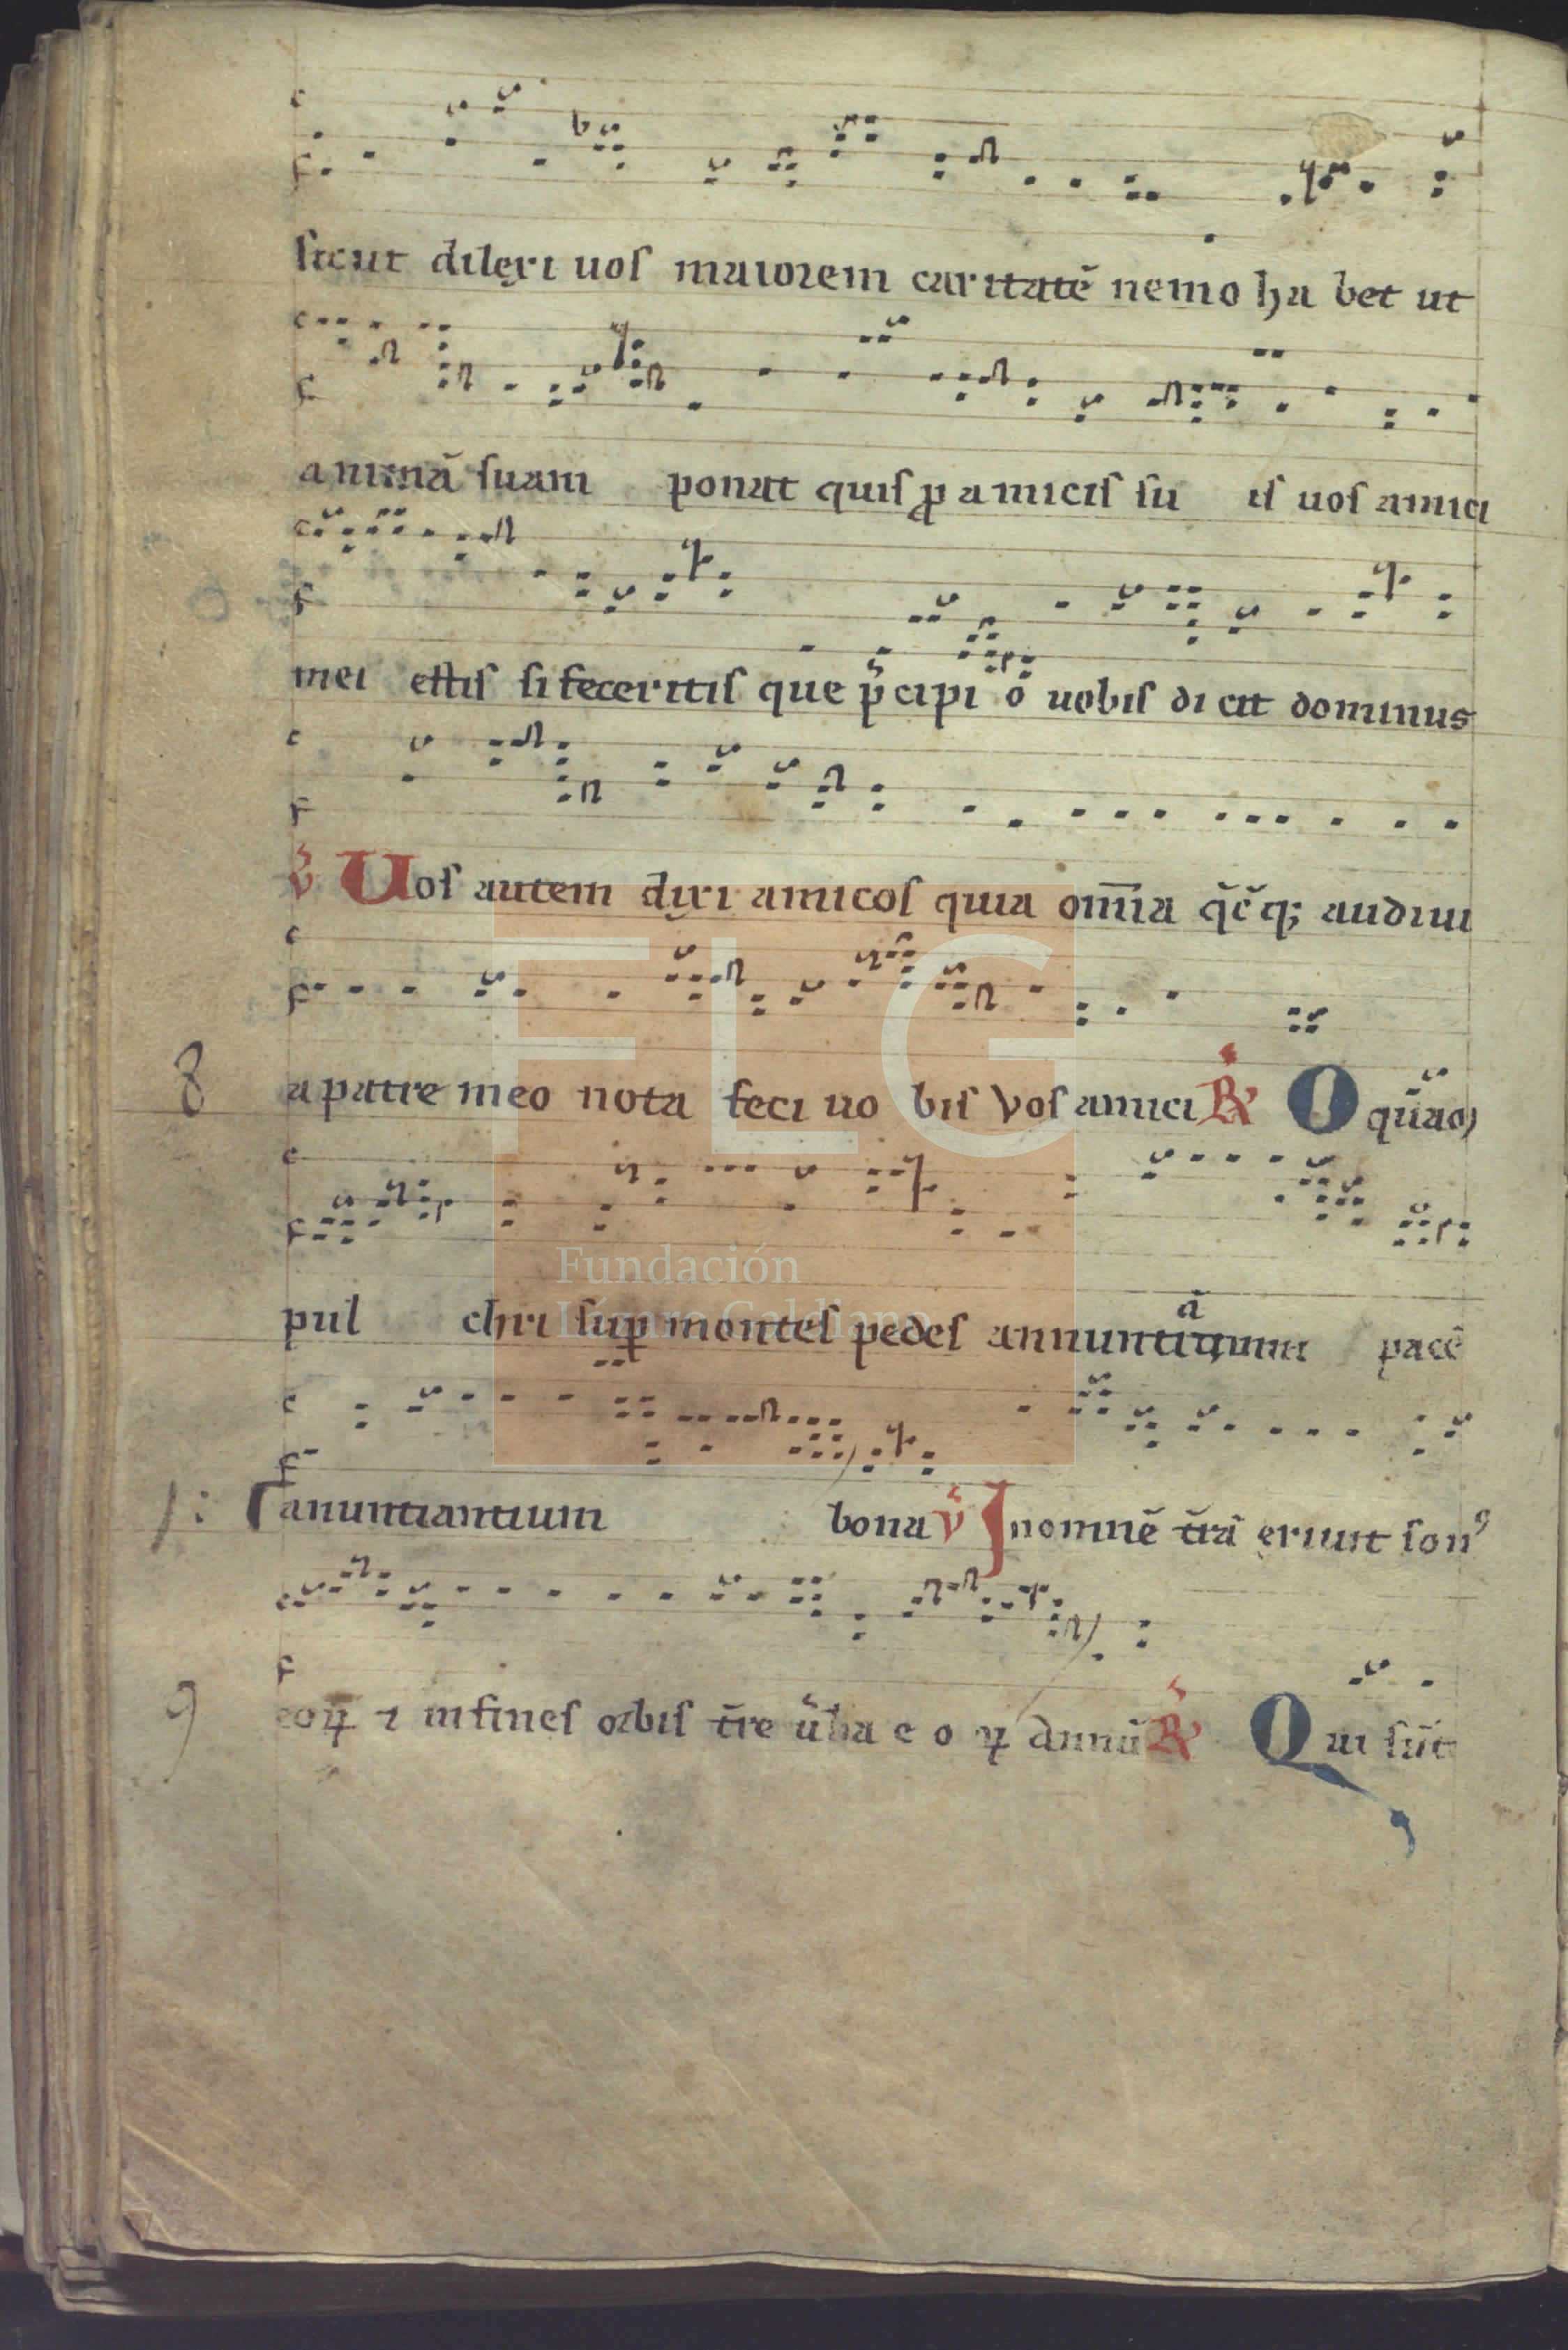 sicut dilexi uos maiorem caritatē nemo ha bet ut
animā suam ponat quis ꝓ amicis su is uos amici
mei estis si feceritis que p̄cipi o uobis di cit dominus
v̄ Uos autem dixi amicos quia om̄ia q̄cq; audiui
8 a patre meo nota feci uo bis Vos amici R̷ O quā
pul chri sup̱ montes pedes annuntiantium pacē
F L G
Fundación
Lázaro Galdiano
anuntiantium bona v̄ Jn omnē tr̄ā exiuit sonꝰ
9 eoꝝ ⁊ in fines orbis tr̄re ūba e o ꝝ annū R̷ Qui sūt